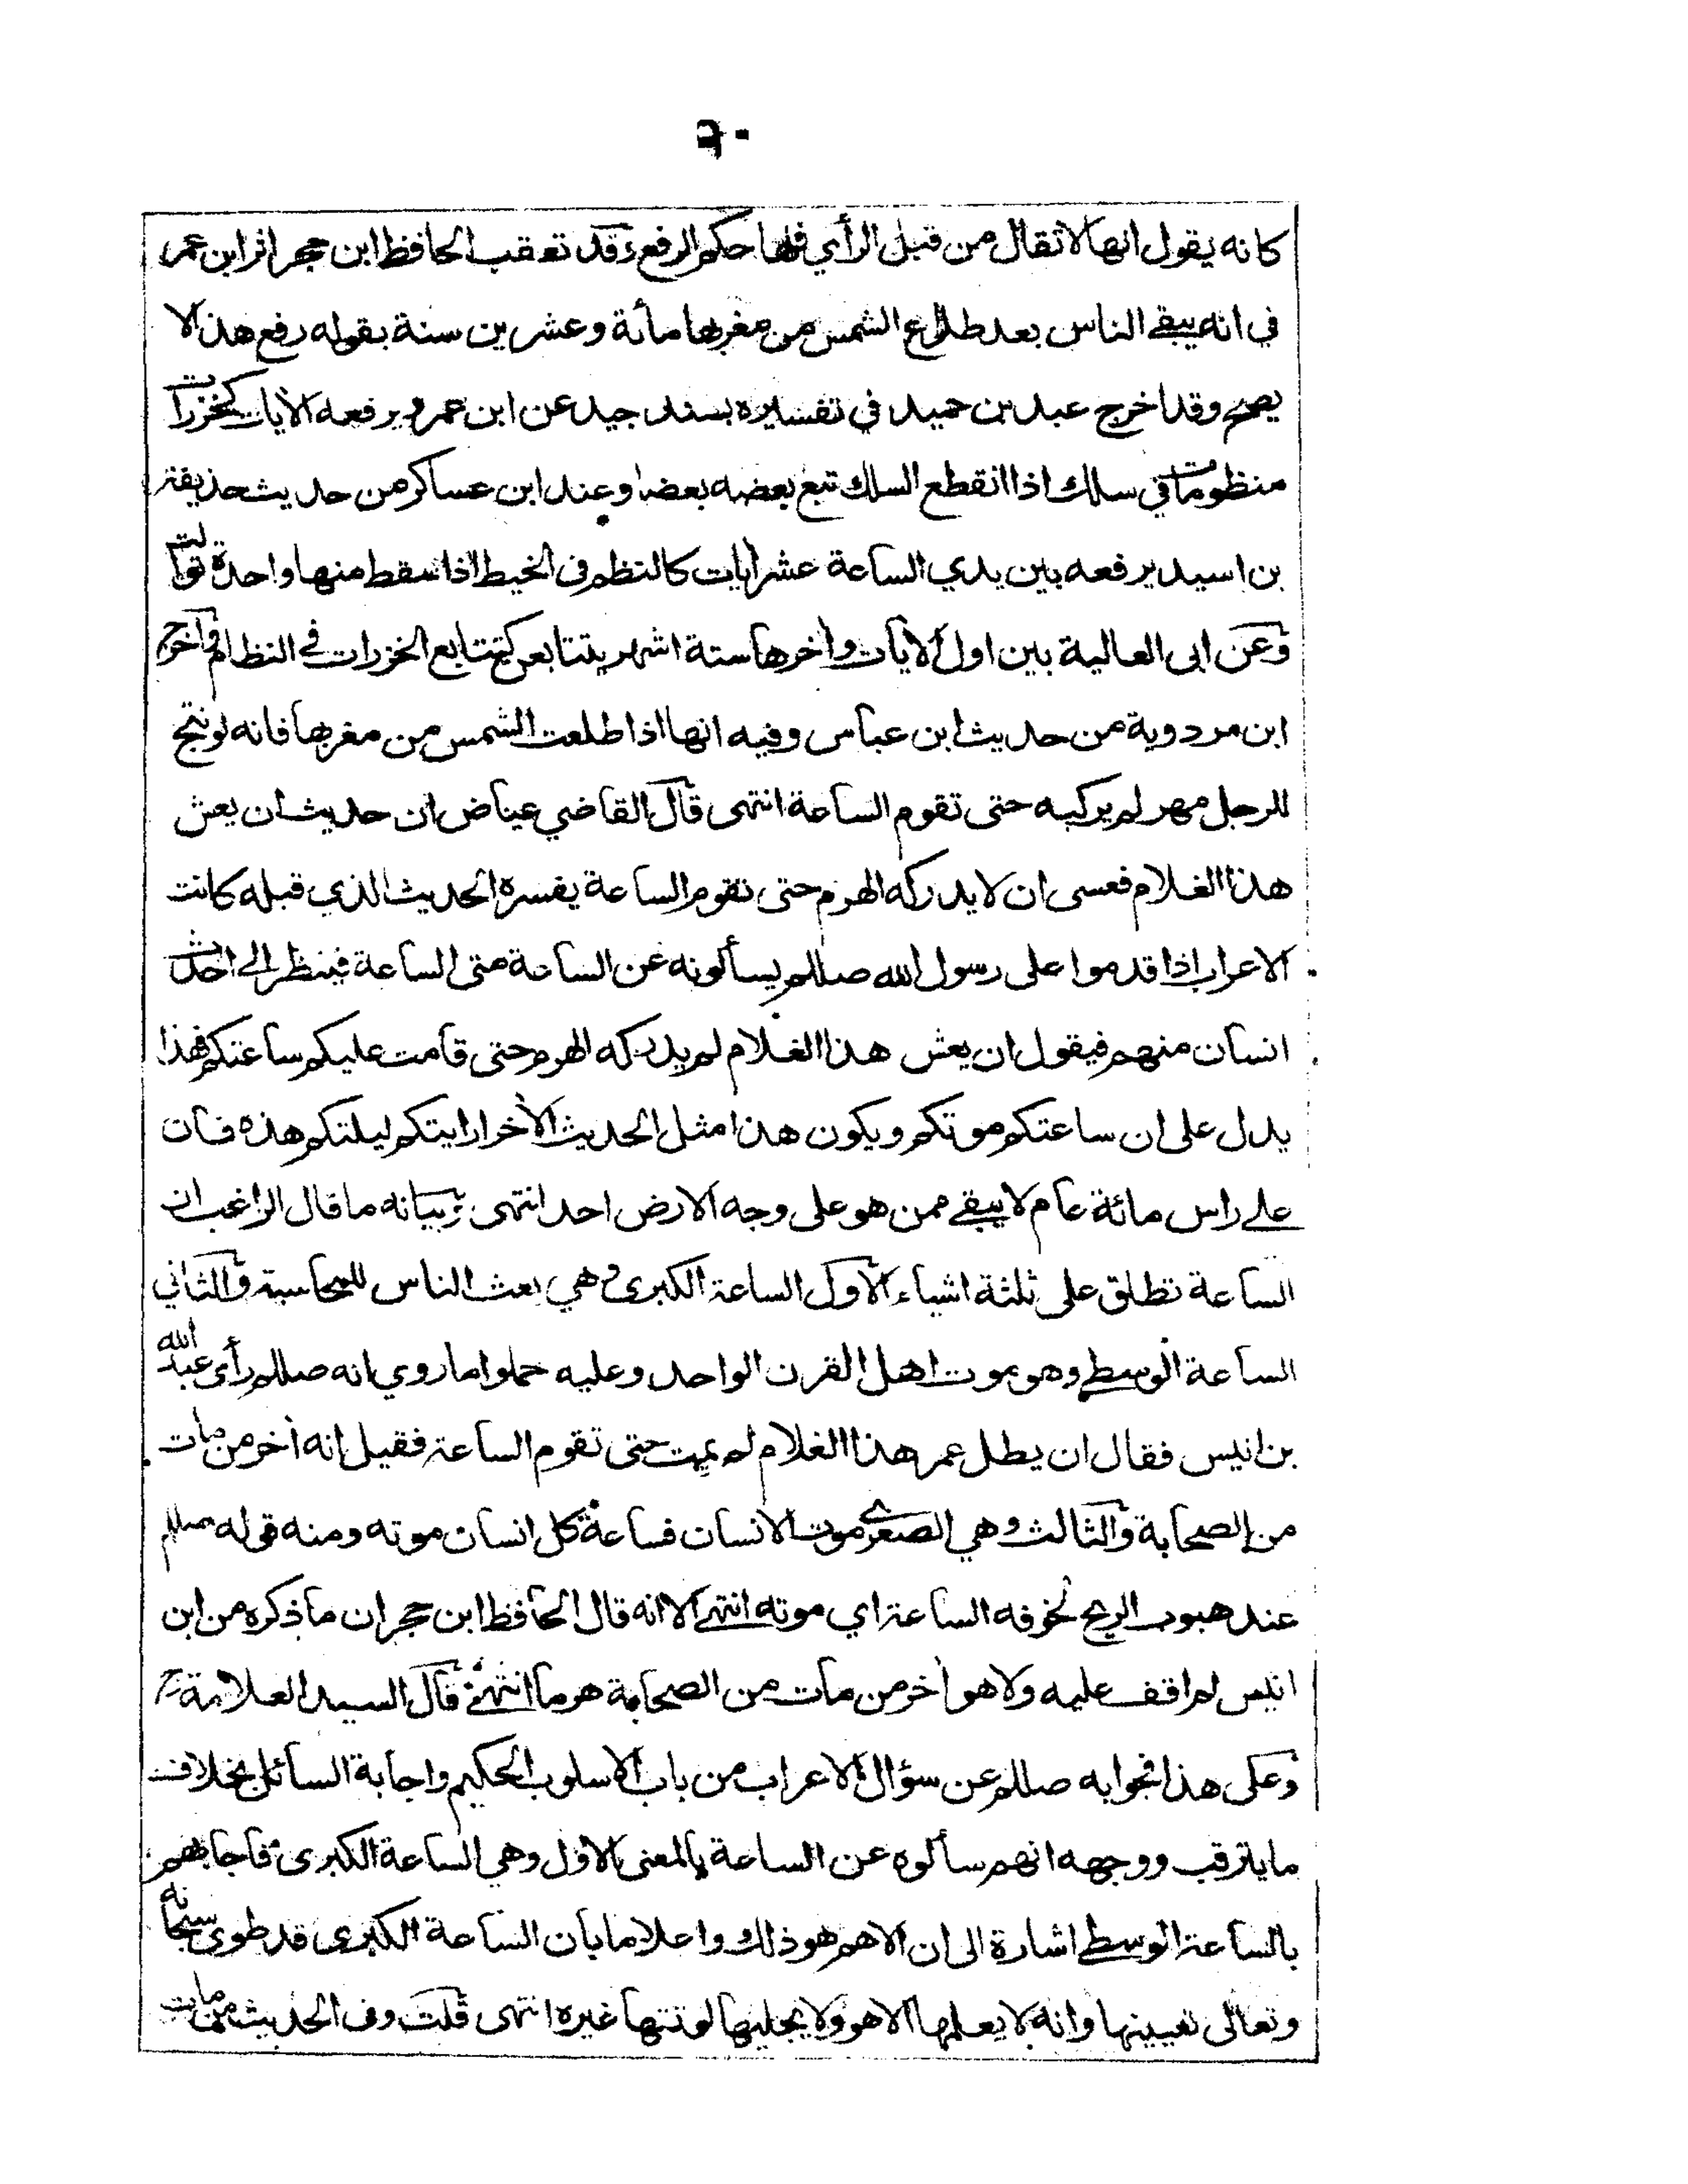 ٦٠
كانه يقول انها لا تقال من قبل الرأي فلها حكم الرفع وقد تعقب الحافظ ابن حجر اثر ابن عمر
في انه يبقى الناس بعد طلوع الشمس من مغربها مأئة وعشرين سنة بقوله رفع هذا لا
يصح وقد اخرج عبد بن حميد في تفسيره بسند جيد عن ابن عمرو يرفعه الأيات كخزرات
منظومات في سلك اذا انقطع السلك تبع بعضه بعضا وعند ابن عساكر من حديث حذيفة
بن اسيد يرفعه بين يدي الساعة عشر أيات كالنظم في الخيط اذا سقط منها واحدة توالت
وعن ابى العالية بين اول الأيات وأخرها ستة اشهر يتتابعن كتتابع الخزرات في النظام واخرج
ابن مردوية من حديث ابن عباس وفيه انها اذا طلعت الشمس من مغربها فانه لو نتج
للرجل مهر لم يركبه حتى تقوم الساعة انتهى قال القاضي عياض ان حديث ان يعش
هذا الغلام فعسى ان لا يدركه الهرم حتى تقوم الساعة يفسره الحديث الذي قبله كانت
الاعراب اذا قدموا على رسول الله صللم يسألونه عن الساعة متى الساعة فينظر الى احدث
انسان منهم فيقول ان يعش هذا الغلام لم يدركه الهرم حتى قامت عليكم ساعتكم فهذا
يدل على ان ساعتكم موتكم ويكون هذا مثل الحديث الأخر ارايتكم ليلتكم هذه فان
على راس مائة عام لا يبقى ممن هو على وجه الارض احد انتهى وبيانه ما قال الراغب ان
الساعة تطلق على ثلثة اشياء الأول الساعة الكبرى وهي بعث الناس للمحاسبة والثاني
الساعة الوسطى وهو موت اهل القرن الواحد وعليه حملوا ما روي انه صللم رأى عبد الله
بن انيس فقال ان يطل عمر هذا الغلام لم يمت حتى تقوم الساعة فقيل انه أخر من مات
من الصحابة والثالث وهي الصغرى موت الانسان فساعة كل انسان موته ومنه قوله صللم
عند هبوب الريح تخوفه الساعة اي موته انتهى الا انه قال الحافظ ابن حجر ان ما ذكره من ابن
انيس لم اقف عليه ولا هو أخر من مات من الصحابة هرما انتهى قال السيد العلامة رح
وعلى هذا فجوابه صللم عن سؤال الاعراب من باب الاسلوب الحكيم واجابة السائل بخلاف
ما يترقب ووجهه انهم سألوه عن الساعة بالمعنى الاول وهي الساعة الكبرى فأجابهم
بالساعة الوسطى اشارة الى ان الاهم هو ذلك واعلاما بان الساعة الكبرى قد طوى سبحانه
وتعالى تعيينها وانه لا يعلمها الا هو ولا يجليها لوقتها غيره انتهى قلت وفى الحديث من مات